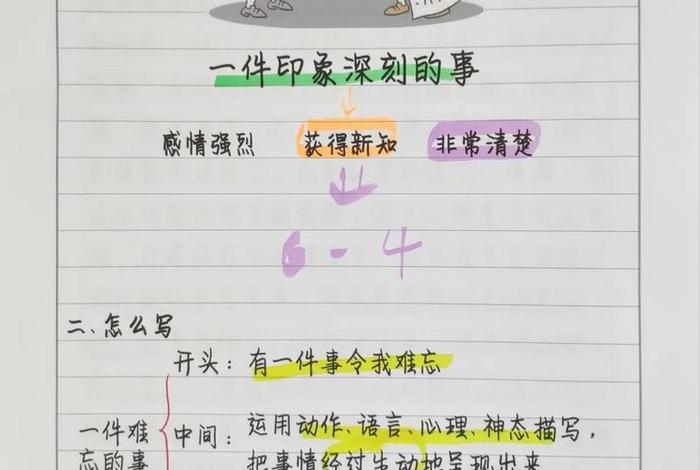 一件印象深刻的事
感情强烈 获得新知 非常清楚
6-4
二、怎么写
开头：有一件事令我难忘
一件难忘的事
中间：运用动作、语言、心理、神态描写，
把事情经过生动地呈现出来